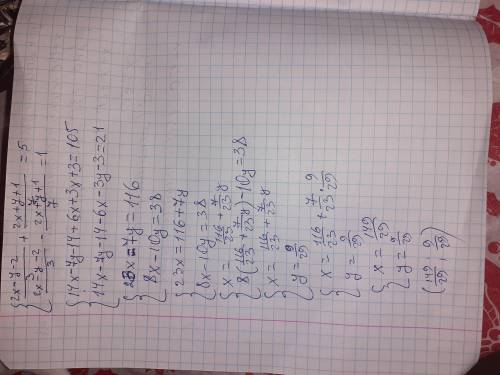 { (2x-y-2)/3 + (2x+y+1)/7 = 5
{ (2x-y-2)/3 - (2x+y+1)/7 = 1
{ 14x-4y-14+6x+3x+3=105
{ 14x-4y-14-6x-3y-3=21
{ 23x-7y=116
{ 8x-10y=38
{ 23x=116+7y
{ 8x-10y=38
{ x = 116/23 + 7/23 y
{ 8(116/23 + 7/23 y)-10y=38
{ x = 116/23 + 7/23 y
{ y = 9/29
{ x = 116/23 + 7/23 · 9/29
{ y = 9/29
{ x = 149/29
{ y = 9/29
(149/29 ; 9/29)